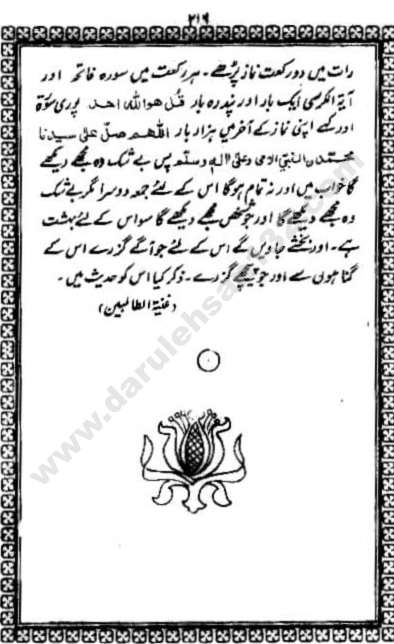 ۲۱۶
رات میں دو رکعت نماز پڑھے۔ ہر رکعت میں سورہ فاتحہ اور
آیۃ الکرسی ایک بار اور پندرہ بار قُل ھواللہ احد پوری سورۃ
اور کہے اپنی نماز کے آخر میں ہزار بار اللھم صلّ علی سیدنا
محمدن النبی الامی وعلیٰ الہ وسلم پس بے شک وہ مجھے دیکھے
گا خواب میں اور نہ تمام ہوگا اس کے لئے جمعہ دوسرا مگر بے شک
وہ مجھے دیکھے گا اور جو شخص مجھے دیکھے گا سو اس کے لئے بہشت
ہے۔ اور بخشے جاویں گے اس کے لئے جو آگے گزرے اس کے
گناہوں سے اور جو پیچھے گزرے۔ ذکر کیا اس کو حدیث میں۔
(غنیۃ الطالبین)
www.darulehsan